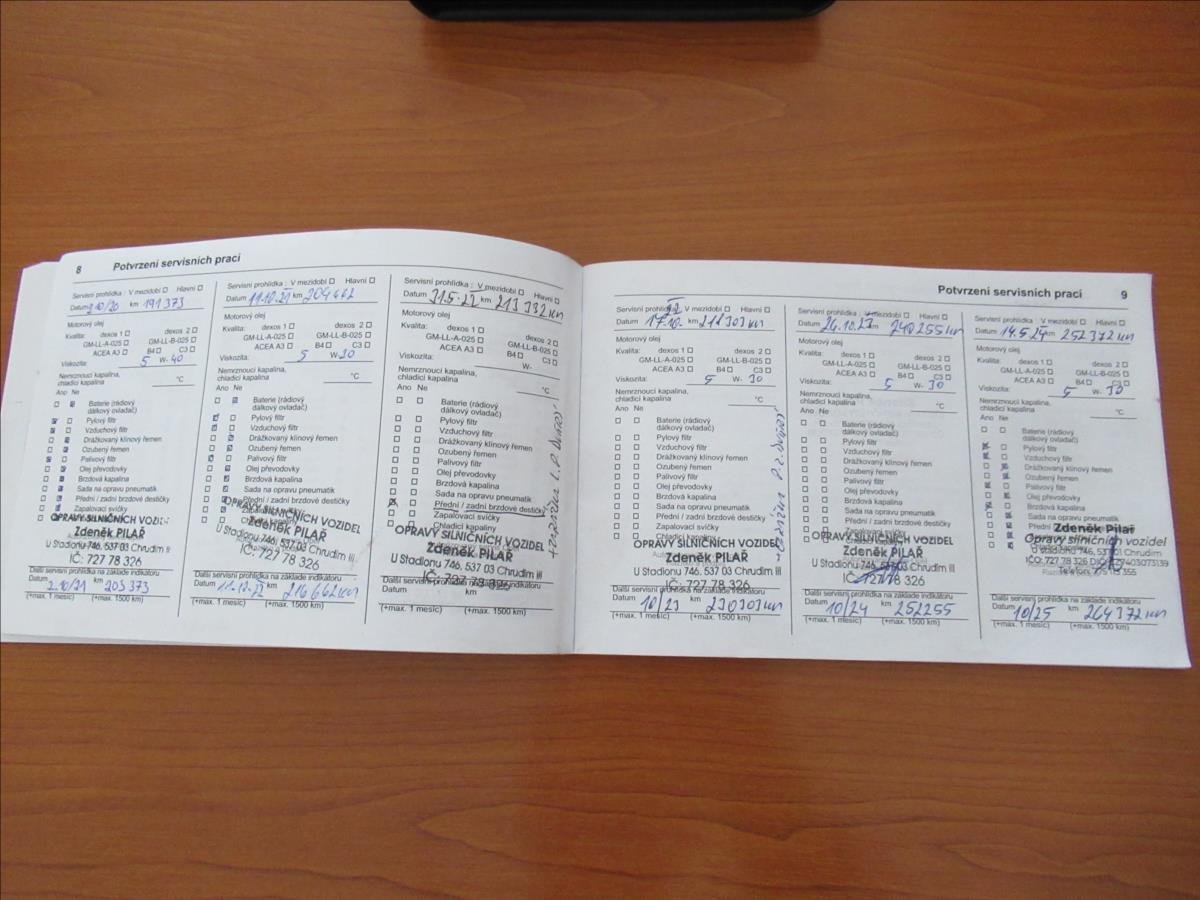 8 Potvrzení servisních prací
Servisní prohlídka : V mezidobí Hlavní
Datum 2.10/20 km 191 373
Motorový olej
Kvalita: dexos 1 dexos 2
GM-LL-A-025 GM-LL-B-025
ACEA A3 B4 C3
Viskozita: 5 W- 40
Nemrznoucí kapalina,
chladicí kapalina °C
Ano Ne
Baterie (rádiový
dálkový ovladač)
Pylový filtr
Vzduchový filtr
Drážkovaný klínový řemen
Ozubený řemen
Palivový filtr
Olej převodovky
Brzdová kapalina
Sada na opravu pneumatik
Přední / zadní brzdové destičky
Zapalovací svíčky
OPRAVY SILNIČNÍCH VOZIDEL
Zdeněk PILAŘ
U Stadionu 746, 537 03 Chrudim
IČ: 727 78 326
Další servisní prohlídka na základě indikátoru
Datum km
2.10/21 203 373
(+max. 1 měsíc) (+max. 1500 km)
Servisní prohlídka : V mezidobí Hlavní
Datum 11.10.21 km 204 662
Motorový olej
Kvalita: dexos 1 dexos 2
GM-LL-A-025 GM-LL-B-025
ACEA A3 B4 C3
Viskozita: 5 W- 30
Nemrznoucí kapalina,
chladicí kapalina °C
Ano Ne
Baterie (rádiový
dálkový ovladač)
Pylový filtr
Vzduchový filtr
Drážkovaný klínový řemen
Ozubený řemen
Palivový filtr
Olej převodovky
Brzdová kapalina
Sada na opravu pneumatik
Přední / zadní brzdové destičky
Zapalovací svíčky
Chladicí kapalina
OPRAVY SILNIČNÍCH VOZIDEL
Zdeněk PILAŘ
U Stadionu 746, 537 03 Chrudim III
IČ: 727 78 326
Další servisní prohlídka na základě indikátoru
Datum 11.10.22 km 216 662 km
(+max. 1 měsíc) (+max. 1500 km)
Servisní prohlídka : V mezidobí Hlavní
Datum 31.5.22 km 213 332 km
Motorový olej
Kvalita: dexos 1 dexos 2
GM-LL-A-025 GM-LL-B-025
ACEA A3 B4 C3
Viskozita: W-
Nemrznoucí kapalina,
chladicí kapalina °C
Ano Ne
Baterie (rádiový
dálkový ovladač)
Pylový filtr
Vzduchový filtr
Drážkovaný klínový řemen
Ozubený řemen
Palivový filtr
Olej převodovky
Brzdová kapalina
Sada na opravu pneumatik
Přední / zadní brzdové destičky
Zapalovací svíčky
Chladicí kapalina
OPRAVY SILNIČNÍCH VOZIDEL
Zdeněk PILAŘ
U Stadionu 746, 537 03 Chrudim III
IČ: 727 78 326
Další servisní prohlídka na základě indikátoru
Datum km
(+max. 1 měsíc) (+max. 1500 km)
Potvrzení servisních prací 9
Servisní prohlídka : V mezidobí Hlavní
Datum 17.10. km 218 303 km
Motorový olej
Kvalita: dexos 1 dexos 2
GM-LL-A-025 GM-LL-B-025
ACEA A3 B4 C3
Viskozita: 5 W- 30
Nemrznoucí kapalina,
chladicí kapalina °C
Ano Ne
Baterie (rádiový
dálkový ovladač)
Pylový filtr
Vzduchový filtr
Drážkovaný klínový řemen
Ozubený řemen
Palivový filtr
Olej převodovky
Brzdová kapalina
Sada na opravu pneumatik
Přední / zadní brzdové destičky
Zapalovací svíčky
Chladicí kapalina
OPRAVY SILNIČNÍCH VOZIDEL
Zdeněk PILAŘ
U Stadionu 746, 537 03 Chrudim III
IČ: 727 78 326
Další servisní prohlídka na základě indikátoru
Datum 10/23 km 230303 km
(+max. 1 měsíc) (+max. 1500 km)
Servisní prohlídka : V mezidobí Hlavní
Datum 26.10.23 km 240 255 km
Motorový olej
Kvalita: dexos 1 dexos 2
GM-LL-A-025 GM-LL-B-025
ACEA A3 B4 C3
Viskozita: 5 W- 30
Nemrznoucí kapalina,
chladicí kapalina °C
Ano Ne
Baterie (rádiový
dálkový ovladač)
Pylový filtr
Vzduchový filtr
Drážkovaný klínový řemen
Ozubený řemen
Palivový filtr
Olej převodovky
Brzdová kapalina
Sada na opravu pneumatik
Přední / zadní brzdové destičky
Zapalovací svíčky
OPRAVY SILNIČNÍCH VOZIDEL
Zdeněk PILAŘ
U Stadionu 746, 537 03 Chrudim III
IČ: 727 78 326
Další servisní prohlídka na základě indikátoru
Datum 10/24 km 252255
(+max. 1 měsíc) (+max. 1500 km)
Servisní prohlídka : V mezidobí Hlavní
Datum 14.5.24 km 252 372 km
Motorový olej
Kvalita: dexos 1 dexos 2
GM-LL-A-025 GM-LL-B-025
ACEA A3 B4 C3
Viskozita: 5 W- 30
Nemrznoucí kapalina,
chladicí kapalina °C
Ano Ne
Baterie (rádiový
dálkový ovladač)
Pylový filtr
Vzduchový filtr
Drážkovaný klínový řemen
Ozubený řemen
Palivový filtr
Olej převodovky
Brzdová kapalina
Sada na opravu pneumatik
Zdeněk Pilař
Opravy silničních vozidel
U Stadionu 746, 537 01 Chrudim
Další servisní prohlídka na základě indikátoru
Datum 10/25 km 264 372 km
(+max. 1 měsíc) (+max. 1500 km)